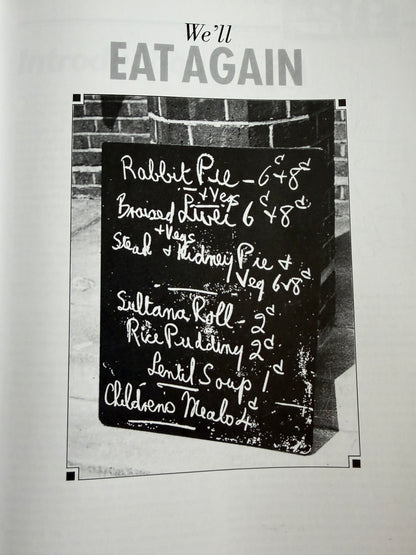 We'll
EAT AGAIN
Rabbit Pie - 6d + 8d
+ Veg
Braised Liver 6d + 8d
+ Vegs
Steak + Kidney Pie +
Veg 6d + 8d
Sultana Roll - 2d
Rice Pudding 2d
Lentil Soup 1d
Childrens Meals 4d